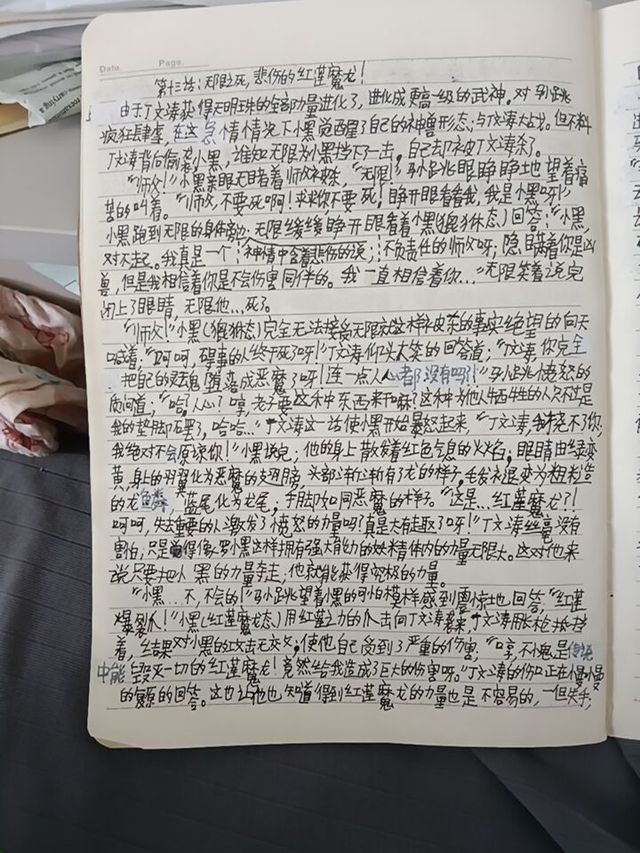 Date. Page.
第十三话:无限之死,悲伤的红莲魔龙!
由于丁文涛获得天明珠的全部力量进化了,进化成更高一级的武神。对马小跳
疯狂肆虐,在这急情情况下小黑觉醒了自己的神兽形态,与丁文涛大战。但不料
丁文涛背后偷袭小黑,谁知无限为小黑挡下了一击,自己却被丁文涛杀了。
“师父!”小黑亲眼无睹着师父被杀,“无限!”马小跳眼睁睁地望着痛
苦的叫着。“师父,不要死啊!求求你不要死!睁开眼看看我,我是小黑呀!”
小黑跑到无限的身体旁边,无限缓缓睁开眼看着小黑(狼狮状态)回答:“小黑,
对不起。我真是一个(神情中含着悲伤的说):不负责任的师父呀,隐瞒着你是凶
兽,但是我相信着你是不会伤害同伴的。我一直相信着你…”无限笑着说完
闭上了眼睛,无限他…死了。
“师父!”小黑(狼狮态)完全无法接受无限就这样被杀的事实绝望的向天
喊着,“呵呵,碍事的人终于死了呀!”丁文涛仰头大笑的回答着;“丁文涛,你完全
把自己的灵魂堕落成恶魔了呀!连一点人心都没有吗?!”马小跳愤怒的
质问道;“哈?人心?哼,老子要这种东西来干嘛?这种为他人牺牲的人只不过是
我的垫脚石罢了,哈哈…”丁文涛这一话使小黑开始暴怒起来,“丁文涛,我饶不了你,
我绝对不会原谅你!”小黑说完,他的身上散发着红色气息的火焰,眼睛由绿变
黄,身上的羽翼化为恶魔的翅膀,头部渐渐有了龙的样子,毛发褪变为粗糙
的龙鳞,蓝尾化为龙尾,手脚如同恶魔的样子。“这是…红莲魔龙?!
呵呵,失去重要的人激发了愤怒的力量吗?真是太有趣了呀!”丁文涛丝毫没有
害怕,只是觉得像罗小黑这样拥有强大能力的妖精体内的力量无限大。这对他来
说只要把小黑的力量夺走,他就能获得究极的力量。
“小黑…不,不会的!”马小跳望着小黑的可怕模样感到震惊地回答,“红莲
爆裂爪!”小黑(红莲魔龙态)用红莲之力的爪击向丁文涛袭来,丁文涛用长枪抵挡
着,结果对小黑的攻击无效,使他自己受到了严重的伤害,“哼,不愧是传说
中能毁灭一切的红莲魔龙!竟然给我造成了巨大的伤害呀。”丁文涛的伤口正在慢慢
的复原的回答。这也让他也知道得到红莲魔龙的力量也是不容易的,一但失手,